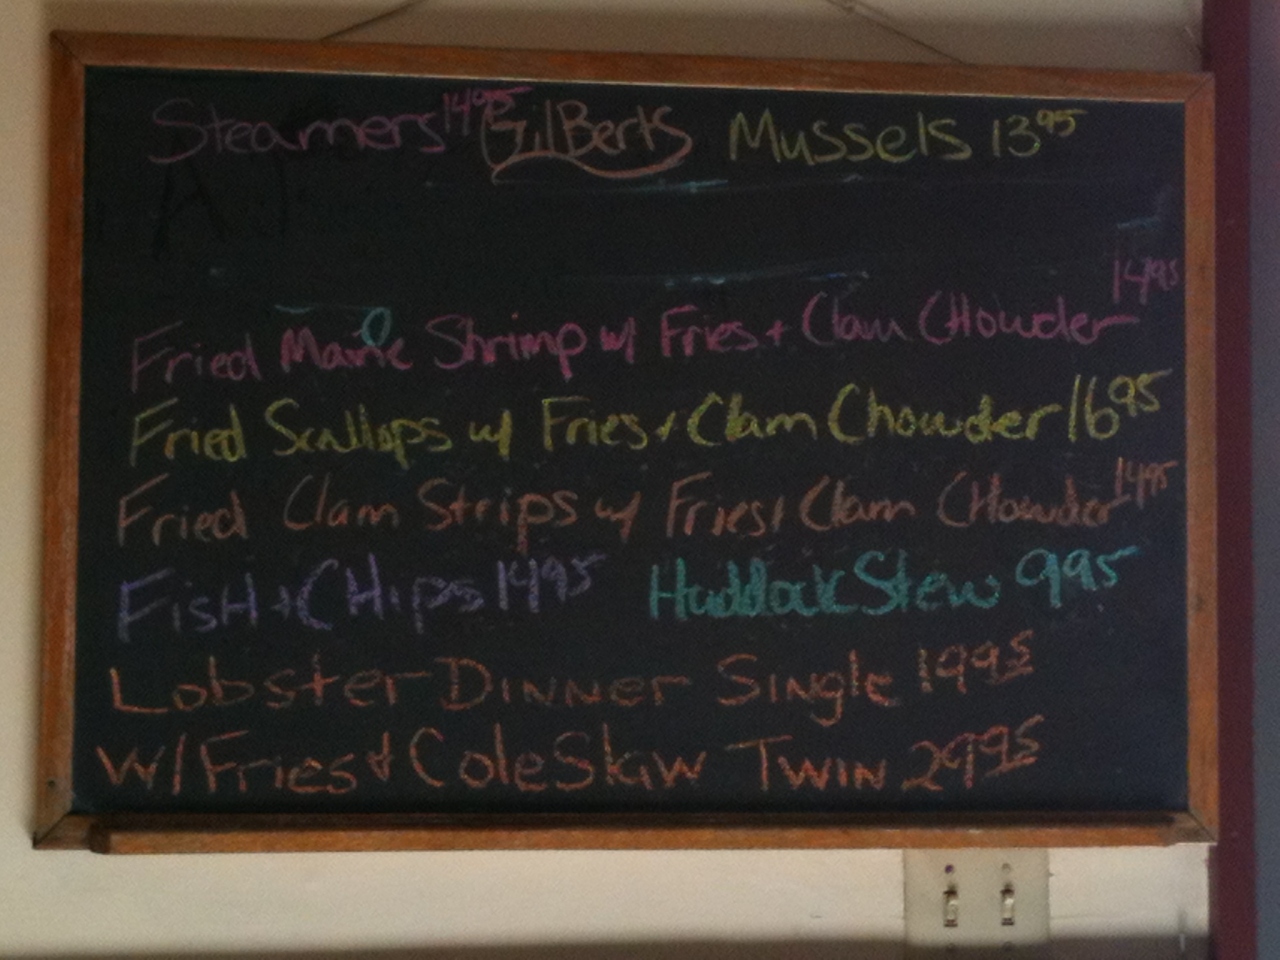 Steamers 1495 GilBerts Mussels 1395
Fried Maine Shrimp w/ Fries + Clam CHowder 1495
Fried Scallops w/ Fries + Clam Chowder 1695
Fried Clam Strips w/ Fries + Clam CHowder 1495
FisH + CHips 1495 Haddock Stew 995
Lobster Dinner Single 1995
W/ Fries & Cole Slaw Twin 2995